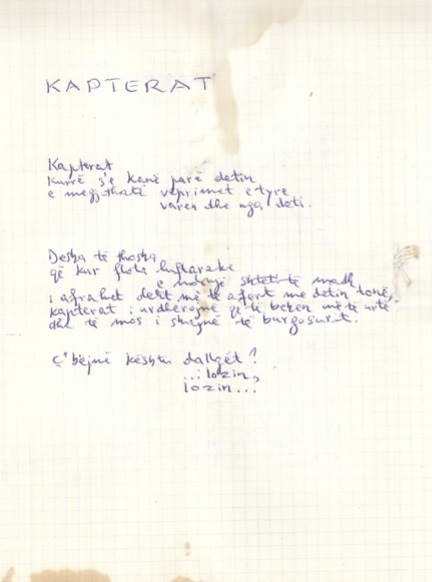 KAPTERAT
Kapterat
kurrë s'e kanë parë detin
e megjithatë veprimet e tyre
varen dhe nga deti.
Desha të thosha
që kur flota luftarake
e ndonjë shteti të madh
i afrohet detit më të afërt me detin tonë,
kapterat i urdhërojnë që të bëhen më të urtë
dhe të mos i shajnë të burgosurit.
ç'bëjnë kështu dallgët?
...: lozin,
lozin...